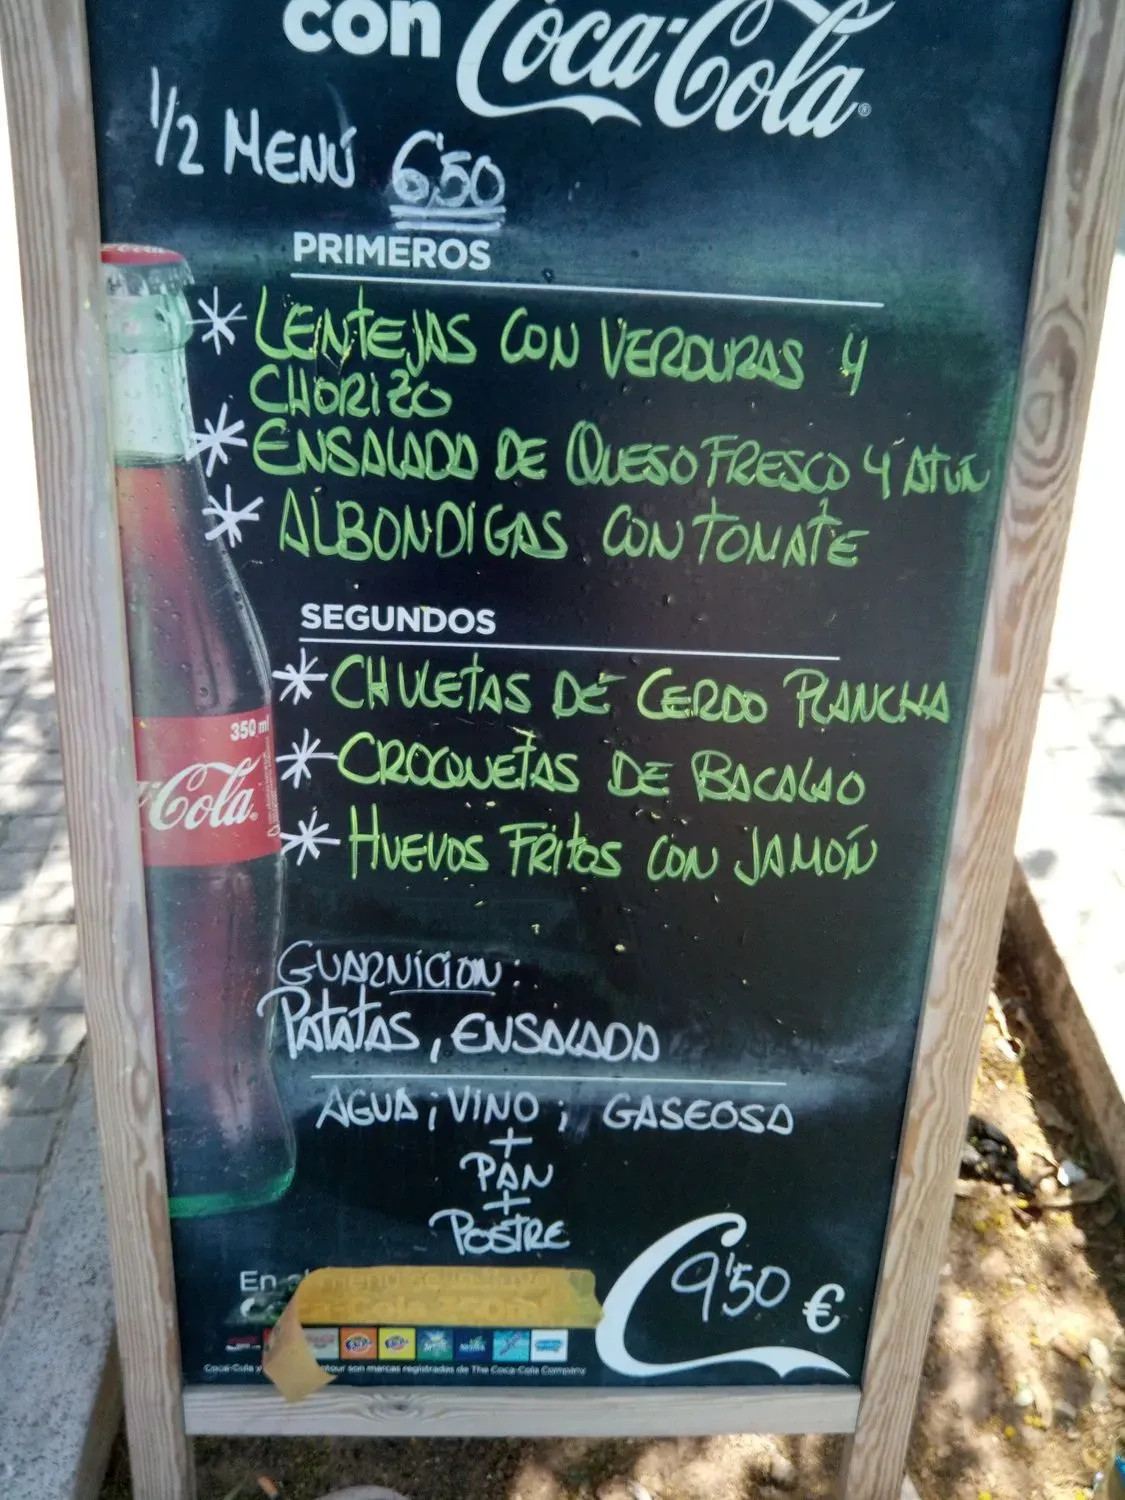 con Coca-Cola®
1/2 MENÚ 6'50
PRIMEROS
* LENTEJAS CON VERDURAS Y
CHORIZO
* ENSALADA DE QUESO FRESCO Y ATÚN
* ALBONDIGAS CON TOMATE
SEGUNDOS
* CHULETAS DE CERDO PLANCHA
* CROQUETAS DE BACALAO
* HUEVOS FRITOS CON JAMÓN
350 ml
Cola
GUARNICION:
PATATAS, ENSALADA
AGUA; VINO; GASEOSA
+
PAN
+
POSTRE
9'50 €
En el menú
Coca-Cola
Coca-Cola y son marcas registradas de The Coca-Cola Company